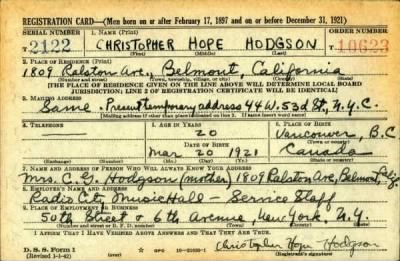 REGISTRATION CARD—(Men born on or after February 17, 1897 and on or before December 31, 1921)
SERIAL NUMBER 1. NAME (Print) ORDER NUMBER
T 2122 CHRISTOPHER HOPE HODGSON 10623
2. PLACE OF RESIDENCE (Print)
1809 Ralston Ave., Belmont California
(Number and street) (Town, township, village, or city) (County) (State)
[THE PLACE OF RESIDENCE GIVEN ON THE LINE ABOVE WILL DETERMINE LOCAL BOARD
JURISDICTION; LINE 2 OF REGISTRATION CERTIFICATE WILL BE IDENTICAL]
3. MAILING ADDRESS
Same. Present temporary address 44 W. 53rd St., N.Y.C.
[Mailing address if other than place indicated on line 2. If same insert word same]
4. TELEPHONE 5. AGE IN YEARS 6. PLACE OF BIRTH
20 Vancouver, B.C.
DATE OF BIRTH (Town or county)
Mar 20 1921 Canada
(Exchange) (Number) (Mo.) (Day) (Yr.) (State or country)
7. NAME AND ADDRESS OF PERSON WHO WILL ALWAYS KNOW YOUR ADDRESS
Mrs. C. G. Hodgson (mother) 1809 Ralston Ave, Belmont, Calif.
8. EMPLOYER'S NAME AND ADDRESS
Radio City Music Hall - Service Staff
9. PLACE OF EMPLOYMENT OR BUSINESS
50th Street & 6th Avenue, New York, N.Y.
(Number and street or R. F. D. number) (Town) (County) (State)
I AFFIRM THAT I HAVE VERIFIED ABOVE ANSWERS AND THAT THEY ARE TRUE.
D. S. S. Form 1 GPO Christopher Hope Hodgson
(Revised 1-1-42) (Registrant's signature)